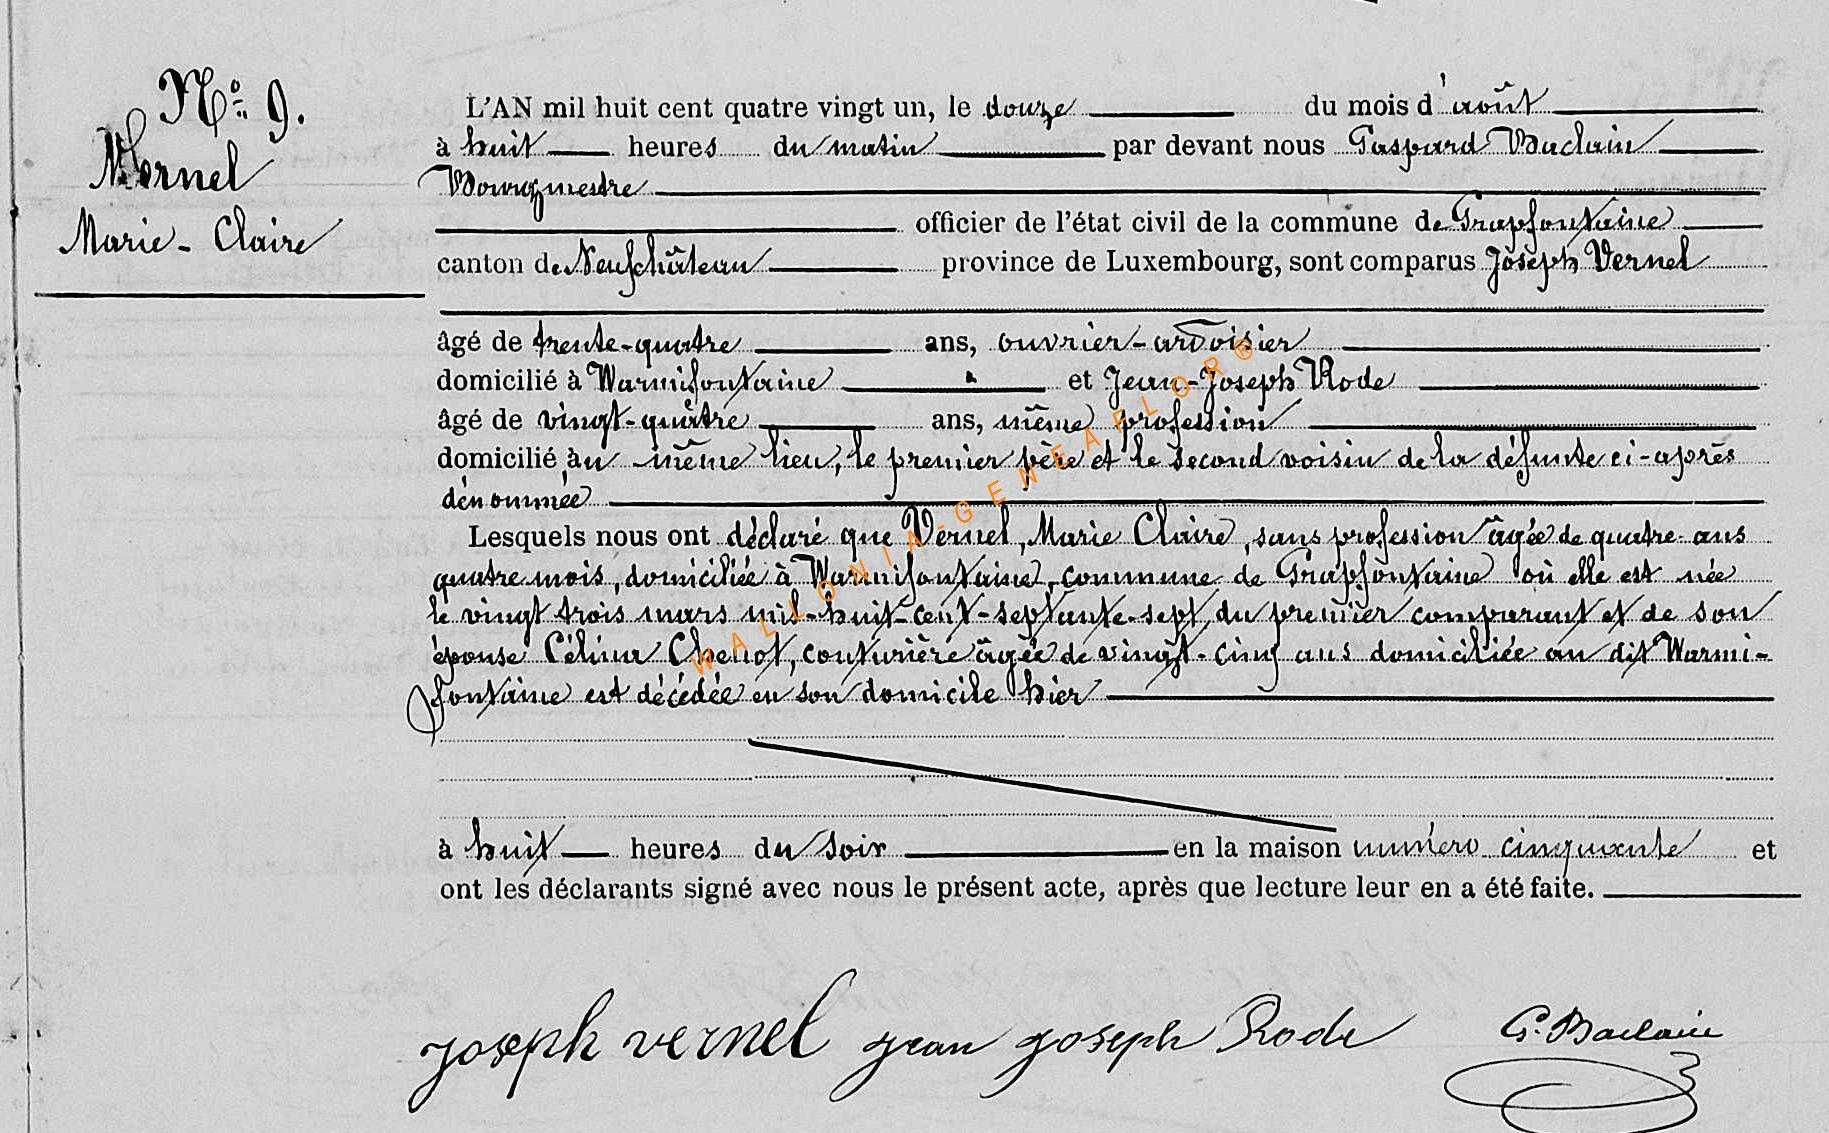 N° 9.
Vernel
Marie - Claire
L'AN mil huit cent quatre vingt un, le douze du mois d'août
à huit heures du matin par devant nous Gaspard Baclain
Bourgmestre
officier de l'état civil de la commune de Grapfontaine
canton de Neufchâteau province de Luxembourg, sont comparus Joseph Vernel
âgé de trente-quatre ans, ouvrier-ardoisier
domicilié à Warmifontaine et Jean-Joseph Rode
âgé de vingt-quatre ans, même profession
domicilié au même lieu, le premier père et le second voisin de la défunte ci-après
dénommée
Lesquels nous ont déclaré que Vernel, Marie Claire, sans profession âgée de quatre ans
quatre mois, domiciliée à Warmifontaine, commune de Grapfontaine où elle est née
le vingt trois mars mil-huit-cent-septante-sept, du premier comparant et de son
épouse Célina Chenot, couturière âgée de vingt-cinq ans domiciliée au dit Warmi-
fontaine est décédée en son domicile hier
à huit heures du soir en la maison numéro cinquante et
ont les déclarants signé avec nous le présent acte, après que lecture leur en a été faite.
joseph vernel jean joseph Rode G. Baclain
WALLONIA-GENEAFLOR®